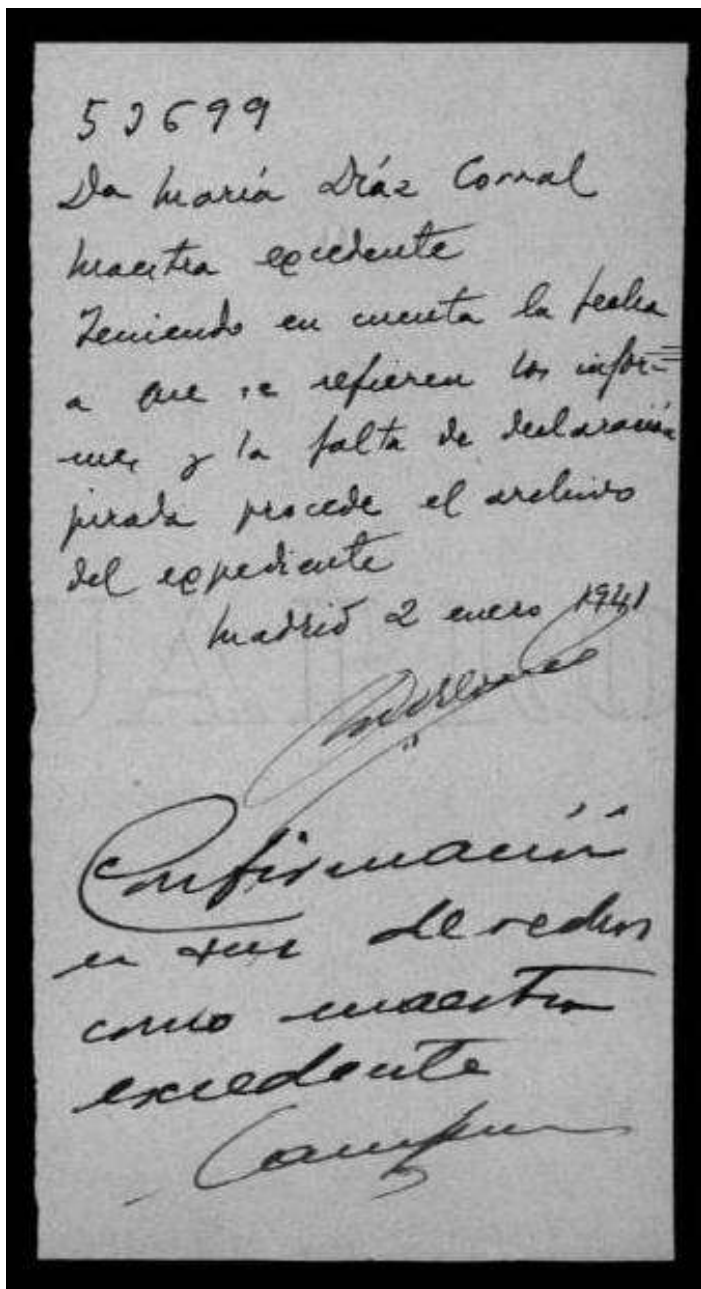 53699
Da María Díaz Corral
Maestra excedente
Teniendo en cuenta la fecha
a que se refieren los infor-
mes y la falta de declaración
jurada procede el archivo
del expediente
Madrid 2 enero 1941
Confirmación
en sus derechos
como maestra
excedente